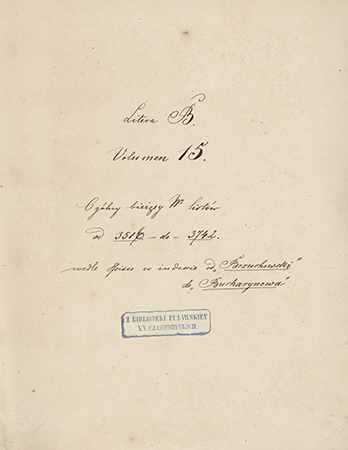 Litera B.
Volumen 15.
Ogólny bieżący Nr listów
od 3516 – do – 3742.
wedle spisu w indexie od „Brzuchowski"
do „Bucharynowa"
Z BIBLIOTEKI PUŁAWSKIEY
XX. CZARTORYSKICH.